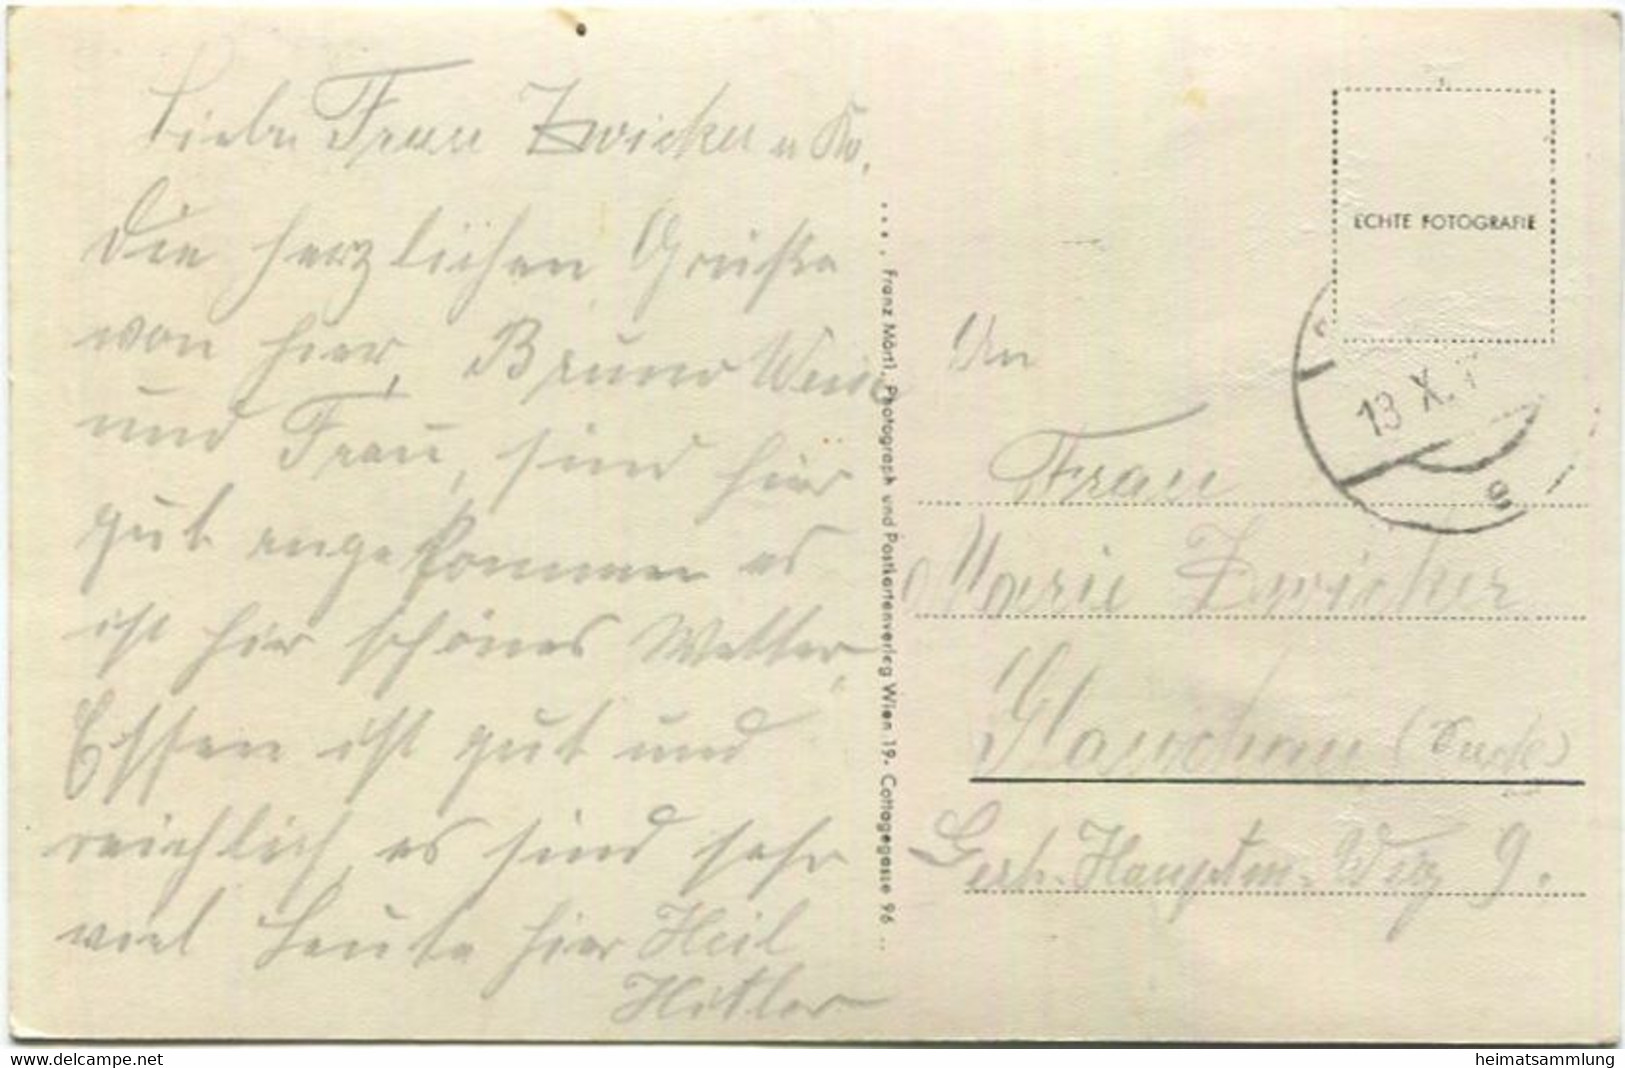 Liebe Frau Zwicker u Ko.
Die herzlichen Grüße
von hier, Bruno Weise
und Frau, sind hier
gut angekommen es
ist hir schönes Wetter,
Essen ist gut und
reichlich, es sind sehr
viel Leute hier Heil
Hitler
..., Franz Mörtl, Photograph und Postkartenverlag Wien 19. Cottagegasse 96 ..
ECHTE FOTOGRAFIE
13.X.
An
Frau
Marie Zwicker
Glauchau (Sachs)
Gerh. Hauptm. Weg 9.
www.delcampe.net
heimatsammlung